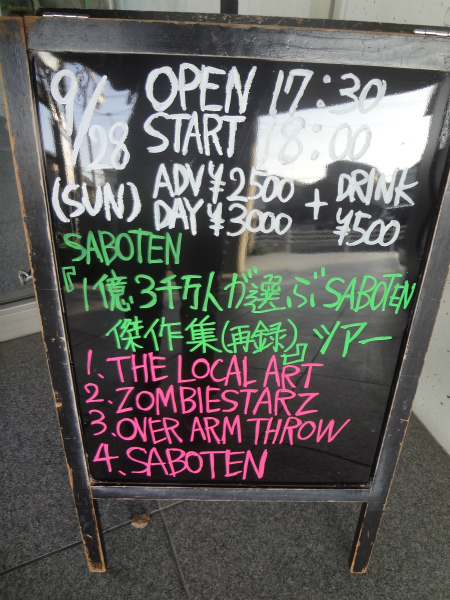 9/28 OPEN 17:30
START 18:00
(SUN) ADV ¥2500 + DRINK
DAY ¥3000 ¥500
SABOTEN
『1億3千万人が選ぶSABOTEN
傑作集(再録)』ツアー
1. THE LOCAL ART
2. ZOMBIESTARZ
3. OVER ARM THROW
4. SABOTEN